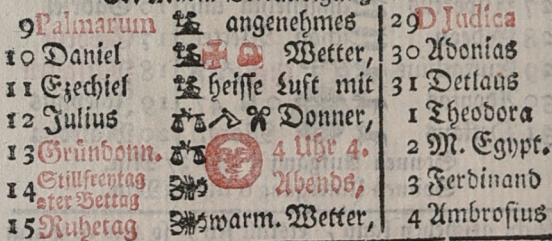 9 Palmarum angenehmes 29 D Judica
10 Daniel Wetter, 30 Adonias
11 Ezechiel heisse Luft mit 31 Detlaus
12 Julius Donner, 1 Theodora
13 Gründonn. 4 Uhr 4. 2 M. Egypt.
14 Stillfreytag
ster Bettag Abends, 3 Ferdinand
15 Ruhetag warm. Wetter, 4 Ambrosius